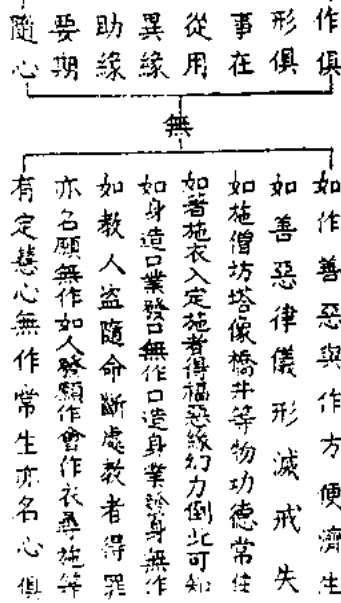 作俱
形俱
事在
從用
異緣
助緣
要期
隨心
無
如作善惡與作方便濟生
如善惡律儀形滅戒失
如施僧坊塔像橋井等物功德常住
如著施衣入定施者得福惡緣幻力倒此可知
如身造口業發口無作口造身業發身無作
如教人盜隨命斷處教者得罪
亦名願無作如人發願作會作衣尋施等
有定慧心無作常生亦名心俱